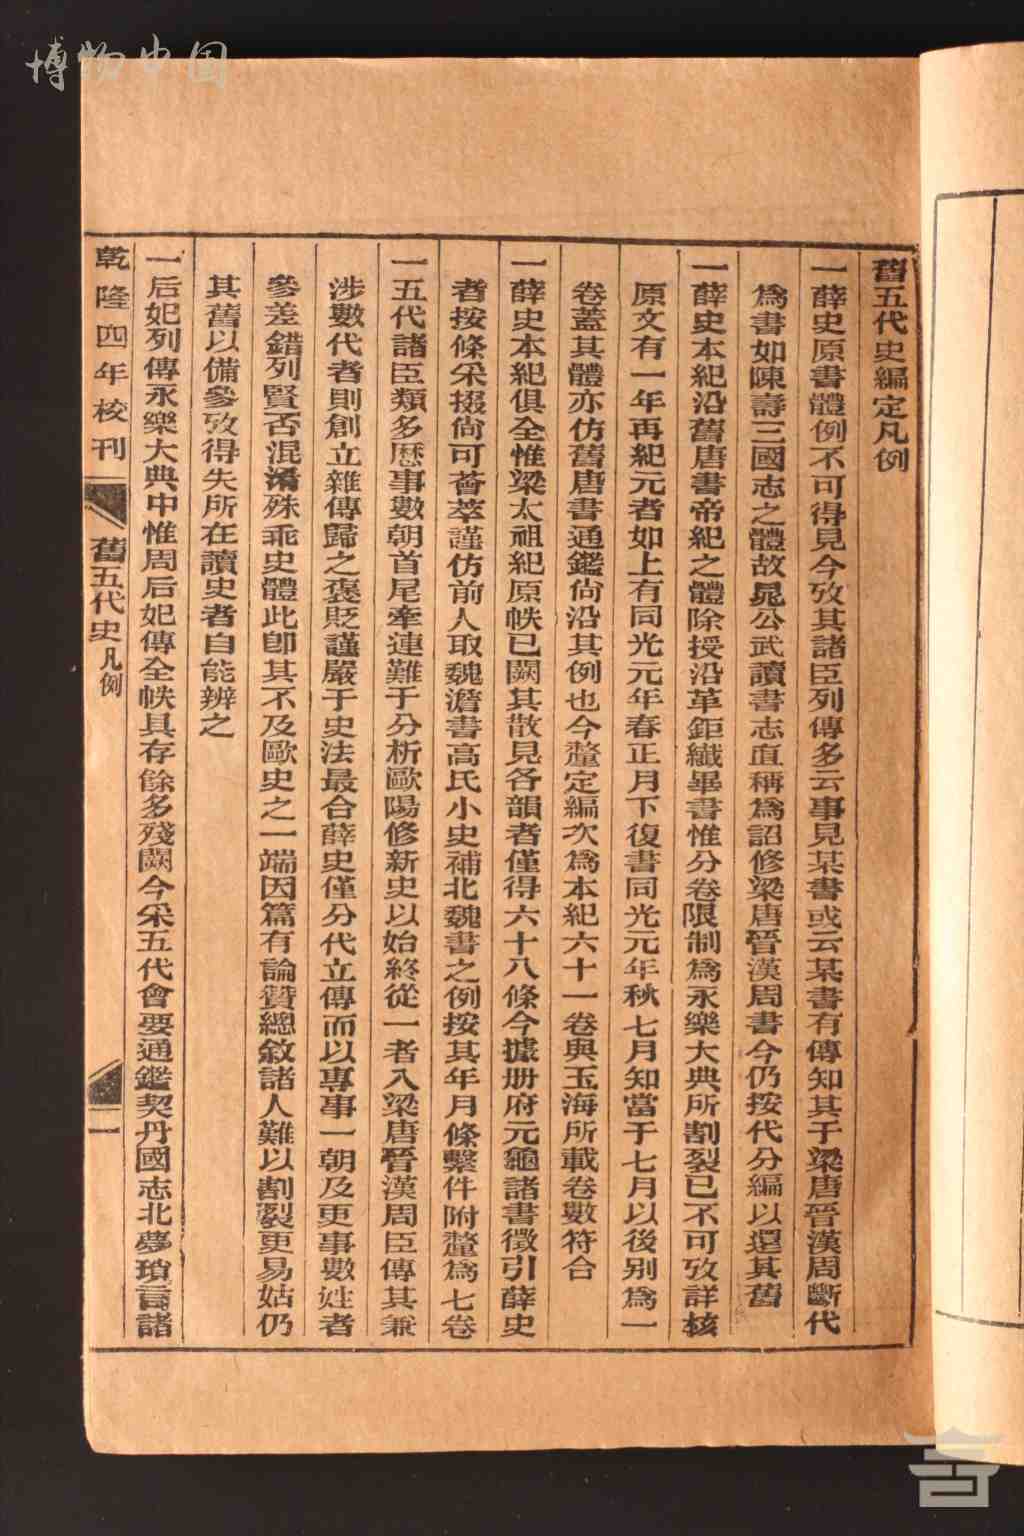 博物中国
舊五代史編定凡例
一薛史原書體例不可得見今攷其諸臣列傳多云事見某書或云某書有傳知其于梁唐晉漢周斷代
爲書如陳壽三國志之體故晁公武讀書志直稱爲詔修梁唐晉漢周書今仍按代分編以還其舊
一薛史本紀沿舊唐書帝紀之體除授沿革鉅纖畢書惟分卷限制爲永樂大典所割裂已不可攷詳核
原文有一年再紀元者如上有同光元年春正月下復書同光元年秋七月知當于七月以後别爲一
卷蓋其體亦仿舊唐書通鑑尙沿其例也今釐定編次爲本紀六十一卷與玉海所載卷數符合
一薛史本紀俱全惟梁太祖紀原帙已闕其散見各韻者僅得六十八條今據册府元龜諸書徵引薛史
者按條采掇尙可薈萃謹仿前人取魏澹書高氏小史補北魏書之例按其年月條繫件附釐爲七卷
一五代諸臣類多歷事數朝首尾牽連難于分析歐陽修新史以始終從一者入梁唐晉漢周臣傳其兼
涉數代者則創立雜傳歸之褒貶謹嚴于史法最合薛史僅分代立傳而以專事一朝及更事數姓者
參差錯列賢否混淆殊乖史體此卽其不及歐史之一端因篇有論贊總敘諸人難以割裂更易姑仍
其舊以備參攷得失所在讀史者自能辨之
一后妃列傳永樂大典中惟周后妃傳全帙具存餘多殘闕今采五代會要通鑑契丹國志北夢瑣言諸
乾隆四年校刊
舊五代史凡例
一